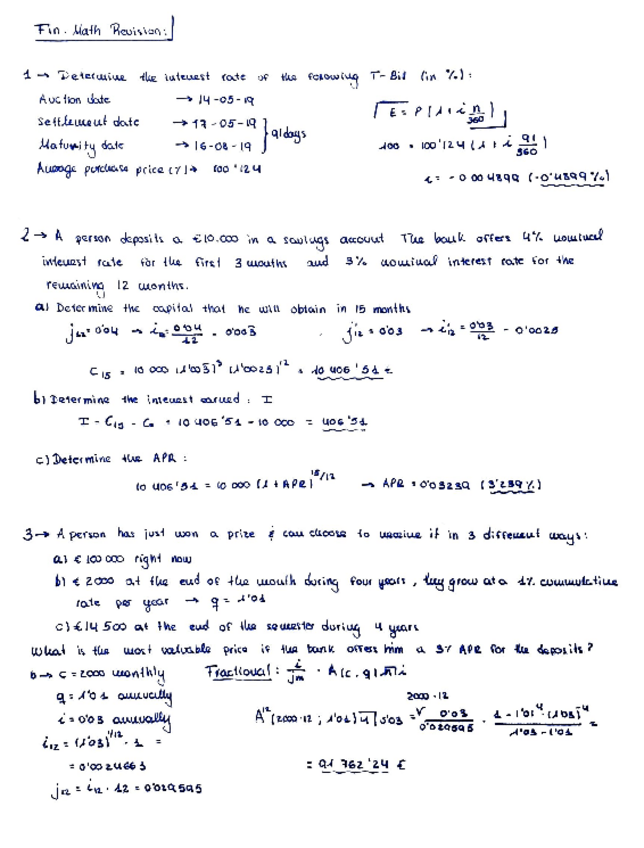 Fin. Math Revision:
1 → Determine the interest rate of the following T-Bill (in %):
Auction date → 14-05-19
Settlement date → 17-05-19
Maturity date → 16-08-19
91 days
Average purchase price (%) → 100'124
E = P (1 + i n/360)
100 = 100'124 (1 + i 91/360)
i = -0'004899 (-0'4899%)
2 → A person deposits a €10.000 in a savings account The bank offers 4% nominal
interest rate for the first 3 months and 3% nominal interest rate for the
remaining 12 months.
a) Determine the capital that he will obtain in 15 months
j12 = 0'04 → i12 = 0'04/12 = 0'003̄ , j'12 = 0'03 → i'12 = 0'03/12 = 0'0025
C15 = 10 000 (1'003̄)³ (1'0025)¹² = 10 406'51 €
b) Determine the interest earned : I
I = C15 - C0 = 10 406'51 - 10 000 = 406'51
c) Determine the APR :
10 406'51 = 10 000 (1 + APR)^15/12 → APR = 0'03239 (3'239%)
3 → A person has just won a prize & can choose to receive it in 3 different ways:
a) € 100 000 right now
b) € 2000 at the end of the month during four years, they grow at a 1% cummulative
rate per year → q = 1'01
c) € 14 500 at the end of the semester during 4 years
What is the most valuable price if the bank offers him a 3% APR for the deposits?
b → c = 2000 monthly
Fractional : i/jm · A(c, q)n̄|i
q = 1'01 annually
2000·12
i = 0'03 annually
A¹²(2000·12 ; 1'01)4̄|0'03 = 0'03/0'029595 · 1 - 1'01⁴ · (1'03)⁴/1'03 - 1'01 =
i12 = (1'03)^1/12 - 1 =
= 0'0024663
= 91 762'24 €
j12 = i12 · 12 = 0'029595